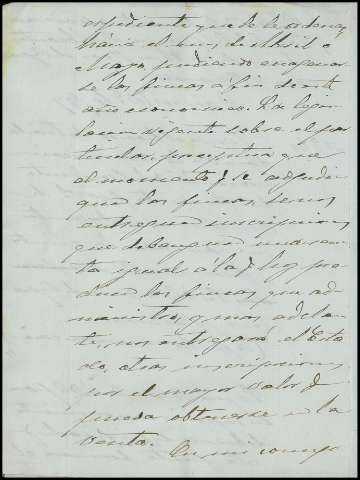 espediente que le le ordena,
hácia el mes de Abril o
Mayo, pudiendo enagenar
se las fincas á fin de este
año economico. La legis
lacion vigente sobre el par
ticular, preceptua que
al momento q se adjudi
quen las fincas, se nos
entreguen inscripciones
que devenguen una ren
ta igual á la q hoy pro
ducen las fincas, que ad
ministro, y mas adelan
te, nos entregará el Esta
do, otras inscripciones
por el mayor valor q
pueda obtenerse en la
venta. En mi concep